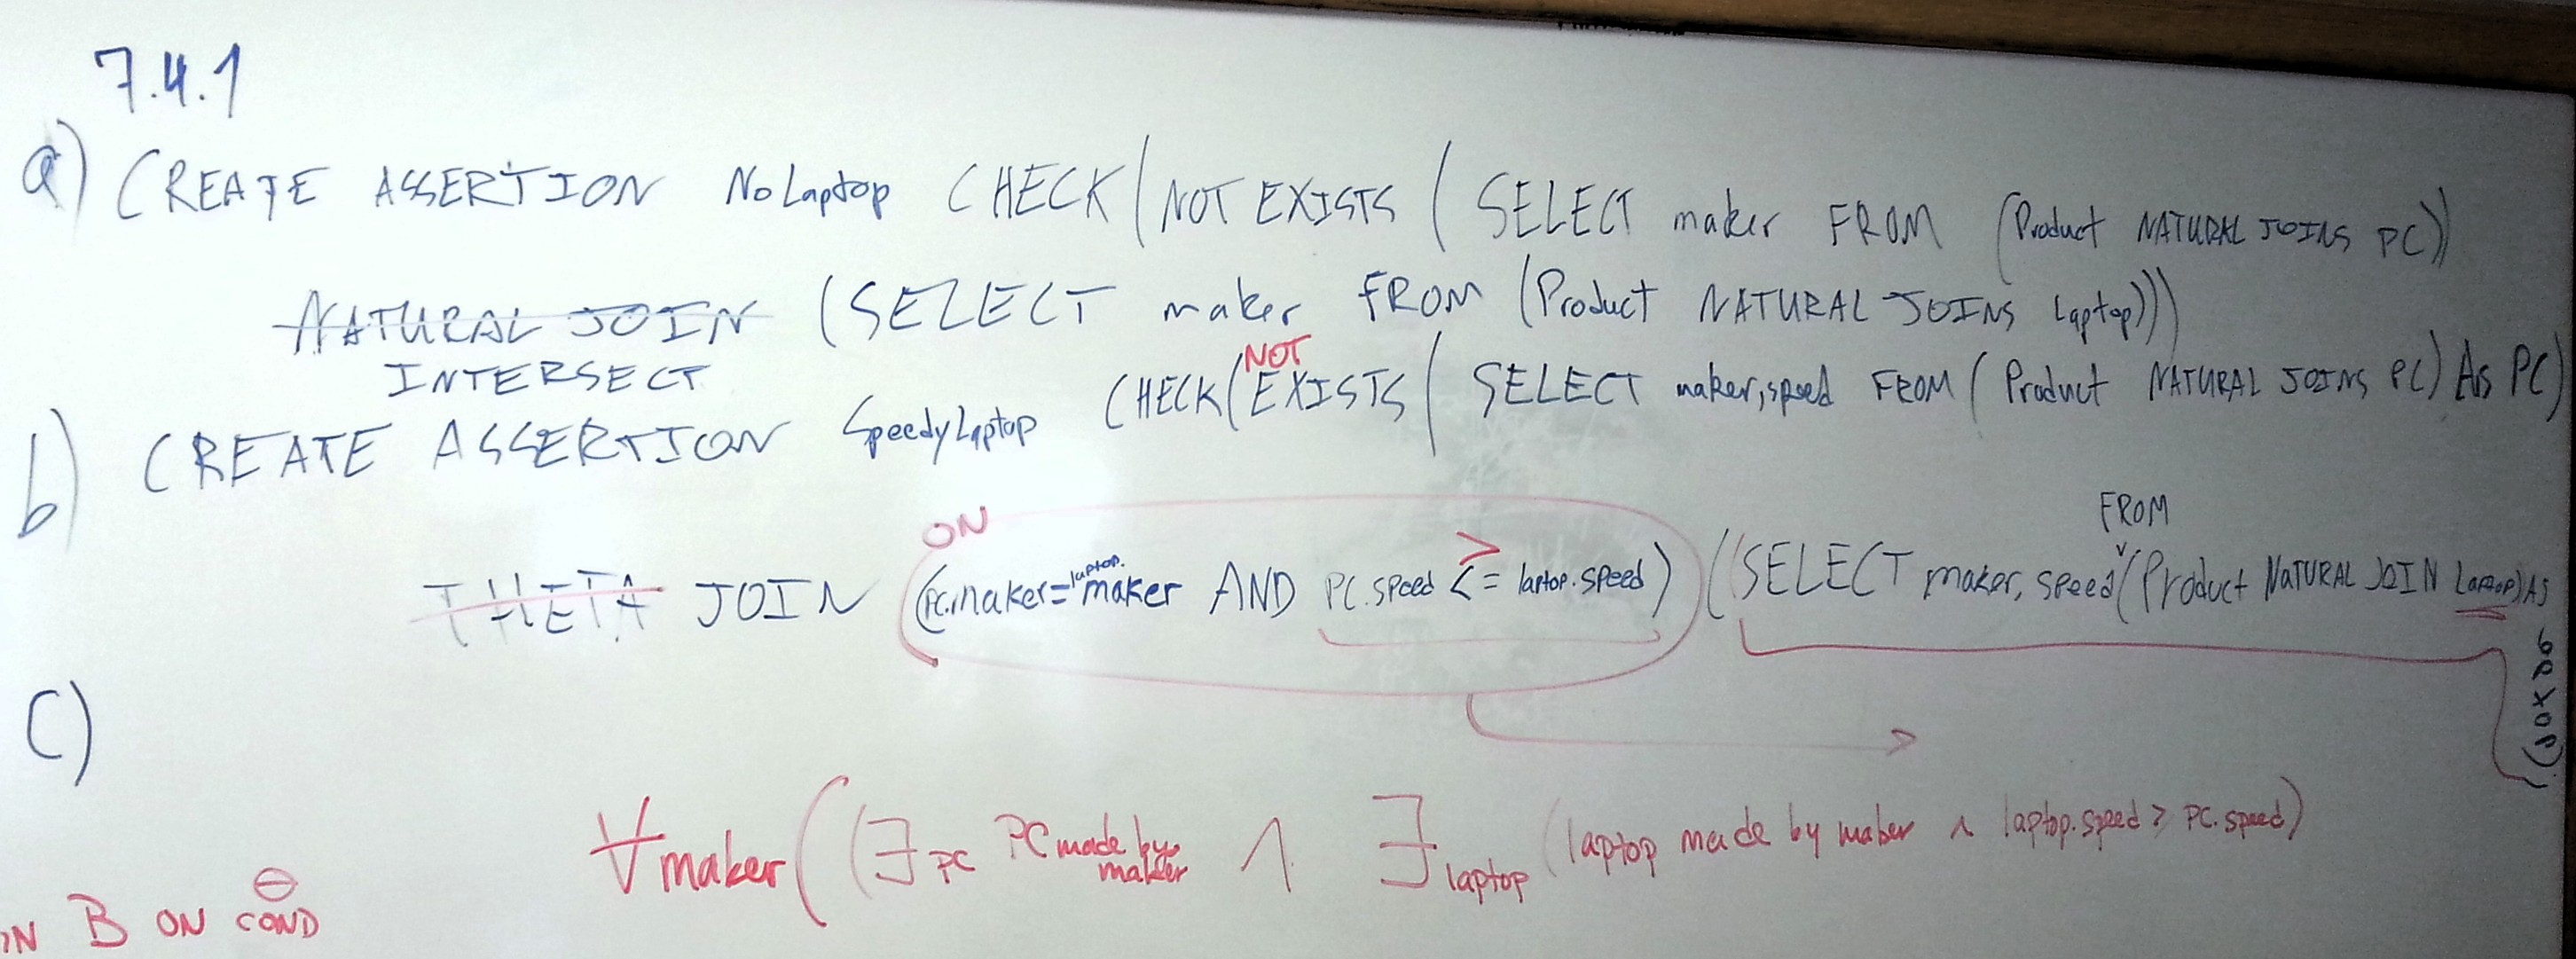 7.4.1
a) CREATE ASSERTION NoLaptop CHECK(NOT EXISTS (SELECT maker FROM (Product NATURAL JOINS PC))
NATURAL JOIN (SELECT maker FROM (Product NATURAL JOINS Laptop)))
INTERSECT
b) CREATE ASSERTION SpeedyLaptop CHECK(NOT EXISTS (SELECT maker,speed FROM (Product NATURAL JOINS PC) AS PC)
ON
THETA JOIN (PC.maker=laptop.maker AND PC.speed > <= laptop.speed) (SELECT maker, speed FROM (Product NATURAL JOIN Laptop) AS
c)
∀maker((∃PC PC made by maker ∧ ∃laptop (laptop made by maker ∧ laptop.speed ≥ PC.speed)
IN B ON COND
Θ